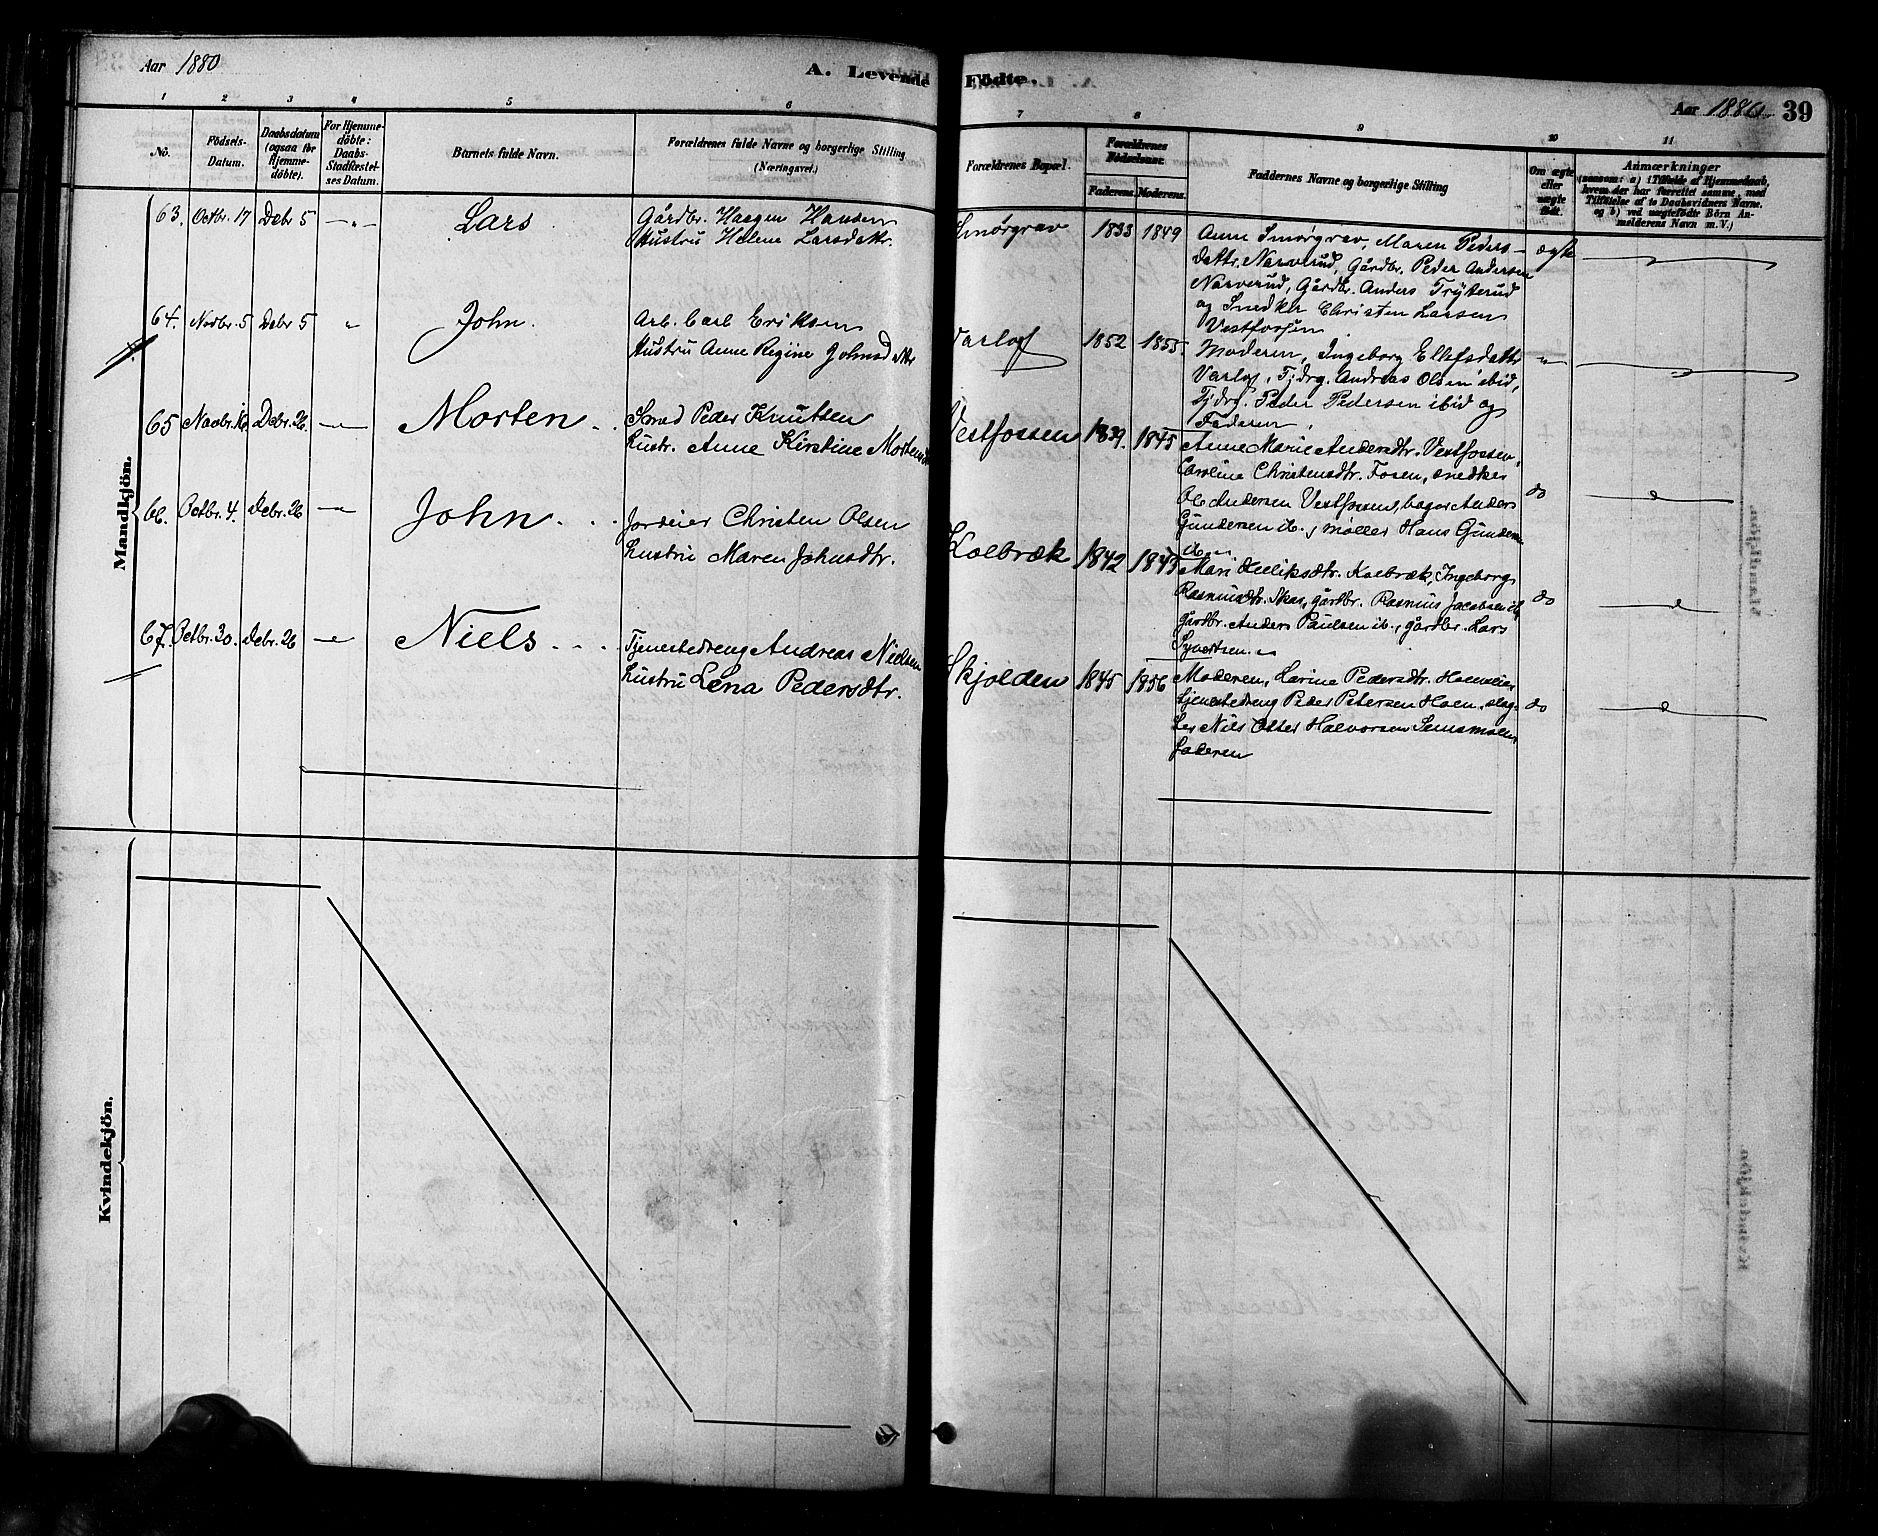 Aar 1880
A. Levende Födte.
Aar 1880
39
1 2 3 4 5 6 7 8 9 10 11
No.
Födsels-Datum.
Daabsdatum (ogsaa for Hjemme-döbte).
For Hjemme-döbte: Daabs-Stadfæstel-ses Datum.
Barnets fulde Navn.
Forældrenes fulde Navne og borgerlige Stilling (Næringsvei.)
Forældrenes Bopæl.
Forældrenes Födselsaar.
Faderens. Moderens.
Faddernes Navne og borgerlige Stilling
Om ægte eller uægte födt.
Anmærkninger
(saasom: a) i Tilfælde af Hjemmedaab,
hvem der har forrettet samme, med
Tilföielse af to Daabsvidners Navne.
og b) ved uægtefödte Börn An-
melderens Navn m. V.)
Mandkjön.
63. Octbr. 17 Debr 5 — " — Lars
Gårdbr. Haagen Hansen
Hustru Helene Larsdattr.
Smörgrav 1833 1849
Anne Smörgrav, Maren Peders-
dattr. Narverud, Gårdbr. Peder Andersen
Narverud, Gårdbr. Anders Tryterud
og Snedker Christen Larsen
Vestfossen
ægte
64. Novbr. 5 Debr 5 " John.
Arb. Carl Eriksen
Hustru Anne Regine Johnsdattr
Varlo 1852 1855.
Moderen, Ingeborg Ellefsdattr
Varlo, Tjdrg. Andreas Olsen ibid,
Tjdrg. Peder Pedersen ibid og
Faderen.
"
65 Novbr. 16. Debr. 26. Morten
Smed Peder Knutsen
hustr. Anne Kirstine Mortensdtr
Vestfossen 1839. 1845
Anne Marie Andersdtr. Vestfossen,
Caroline Christensdtr. Fosen, snedker
Ole Andersen Vestfossen, bager Anders
Gundersen ib., møller Hans Gundersen
ib.
do
66. Octbr. 4. Debr. 26 John
Jordeier Christen Olsen
hustru Maren Johnsdtr.
Kolbræk 1842 1843
Mari Kolbræk, Ingeborg
Rasmusdtr. Skar, gårdbr. Rasmus Jacobsen ib,
gårdbr. Anders Paulsen ib., gårdbr. Lars
Syvertsen.
do
67. Octbr. 30. Debr. 26 Niels
Tjenestedreng Andreas Nielsen
hustru Lena Pedersdtr.
Skjolden 1845 1856
Moderen, Karine Pedersdtr.
tjenestedreng Peder Petersen Hoen, slag-
ter Niels Otter Halvorsen Semsmoen,
faderen
do
Kvindekjön.